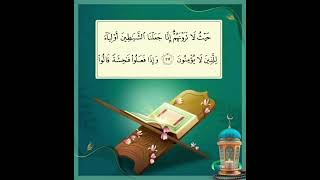 حَيْثُ لَا تَرَوْنَهُمْ إِنَّا جَعَلْنَا ٱلشَّيَٰطِينَ أَوْلِيَآءَ
لِلَّذِينَ لَا يُؤْمِنُونَ ٢٧ وَإِذَا فَعَلُوا۟ فَٰحِشَةً قَالُوا۟